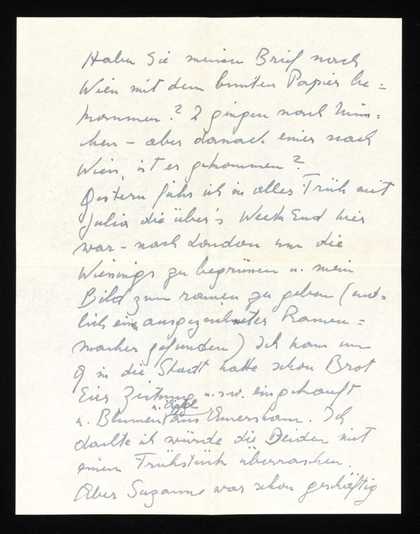 Haben Sie meinen Brief nach
Wien mit dem bunten Papier be=
kommen? 2 gingen nach Mün=
chen – aber danach einer nach
Wien, ist er gekommen?
Gestern fuhr ich in aller Früh mit
Julia die über's Week End hier
war – nach London um die
zu begrüssen u. mein
Bild zum ramen zu geben (end=
lich einen ausgezeichneten Ramen=
macher gefunden) Ich kam um
9 in die Stadt hatte schon Brot
Eier Zeitung u.s.w. eingekauft
u. Blumen u. aus Ich
dachte ich würde die Beiden mit
einem Frühstück überraschen.
Aber Suzanne war schon geschäftig